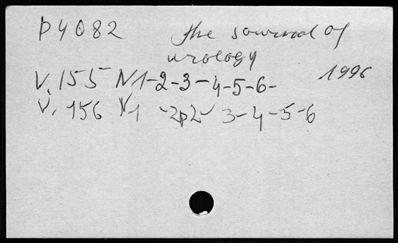 P4082 the journal of
urology
V. 155 N1-2-3-4-5-6- 1996
V. 156 N1 -2p2- 3-4-5-6